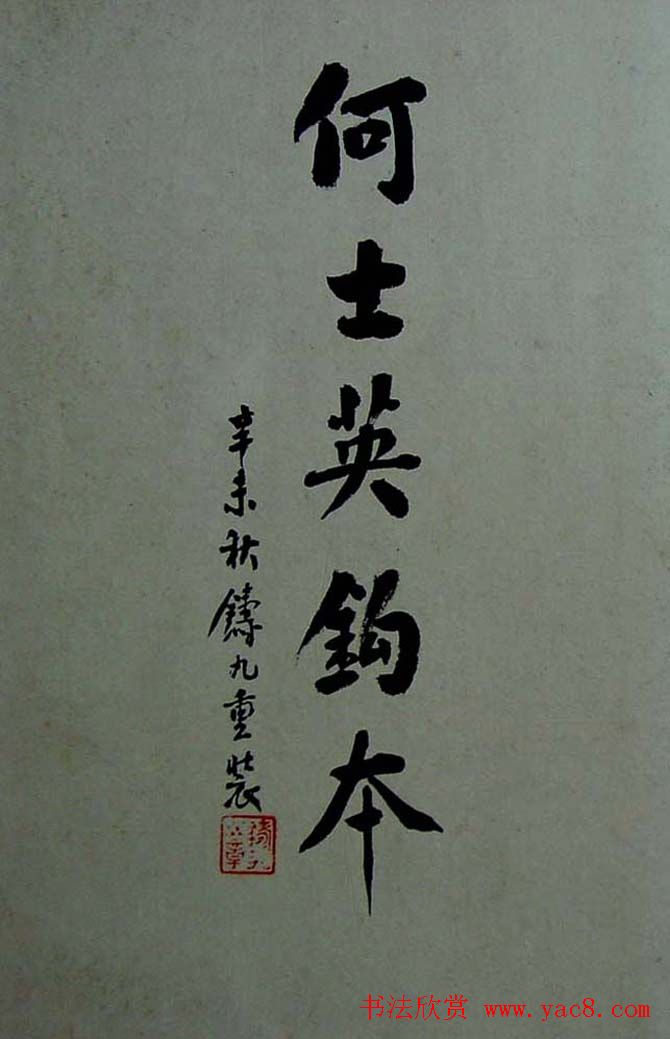 何士英鈎本
辛未秋鑄九重裝
书法欣赏 www.yac8.com